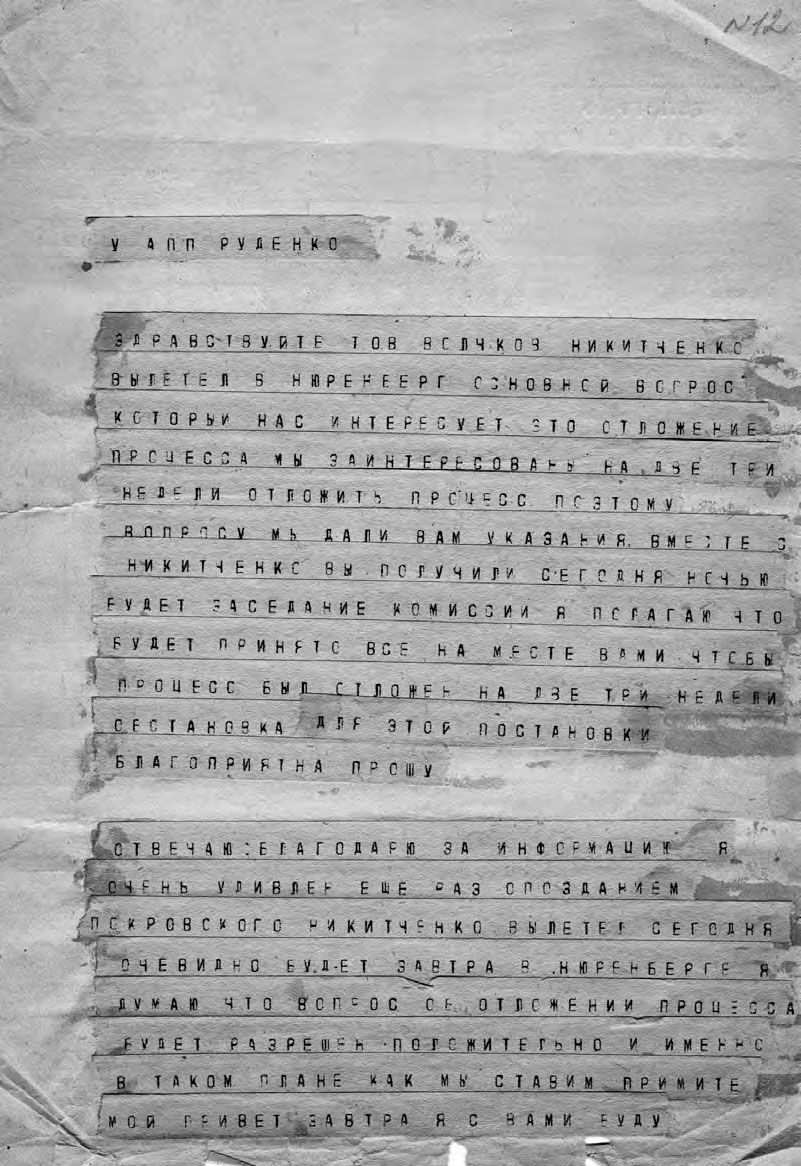 N12
У АПП РУДЕНКО
ЗДРАВСТВУЙТЕ ТОВ ВОЛЧКОВ НИКИТЧЕНКО
ВЫЛЕТЕЛ В НЮРЕНБЕРГ ОСНОВНОЙ ВОПРОС
КОТОРЫЙ НАС ИНТЕРЕСУЕТ ЭТО ОТЛОЖЕНИЕ
ПРОЦЕССА МЫ ЗАИНТЕРЕСОВАНЫ НА ДВЕ ТРИ
НЕДЕЛИ ОТЛОЖИТЬ ПРОЦЕСС ПОЭТОМУ
ВОПРОСУ МЫ ДАЛИ ВАМ УКАЗАНИЯ ВМЕСТЕ С
НИКИТЧЕНКО ВЫ ПОЛУЧИЛИ СЕГОДНЯ НОЧЬЮ
БУДЕТ ЗАСЕДАНИЕ КОМИССИИ Я ПОЛАГАЮ ЧТО
БУДЕТ ПРИНЯТО ВСЕ НА МЕСТЕ ВАМИ ЧТОБЫ
ПРОЦЕСС БЫЛ ОТЛОЖЕН НА ДВЕ ТРИ НЕДЕЛИ
ОБСТАНОВКА ДЛЯ ЭТОЙ ПОСТАНОВКИ
БЛАГОПРИЯТНА ПРОШУ
ОТВЕЧАЮ:БЛАГОДАРЮ ЗА ИНФОРМАЦИЮ Я
ОЧЕНЬ УДИВЛЕН ЕЩЕ РАЗ ОПОЗДАНИЕМ
ПОКРОВСКОГО НИКИТЧЕНКО ВЫЛЕТЕЛ СЕГОДНЯ
ОЧЕВИДНО БУДЕТ ЗАВТРА В НЮРЕНБЕРГЕ Я
ДУМАЮ ЧТО ВОПРОС ОБ ОТЛОЖЕНИИ ПРОЦЕССА
БУДЕТ РАЗРЕШЕН ПОЛОЖИТЕЛЬНО И ИМЕННО
В ТАКОМ ПЛАНЕ КАК МЫ СТАВИМ ПРИМИТЕ
МОЙ ПРИВЕТ ЗАВТРА Я С ВАМИ БУДУ